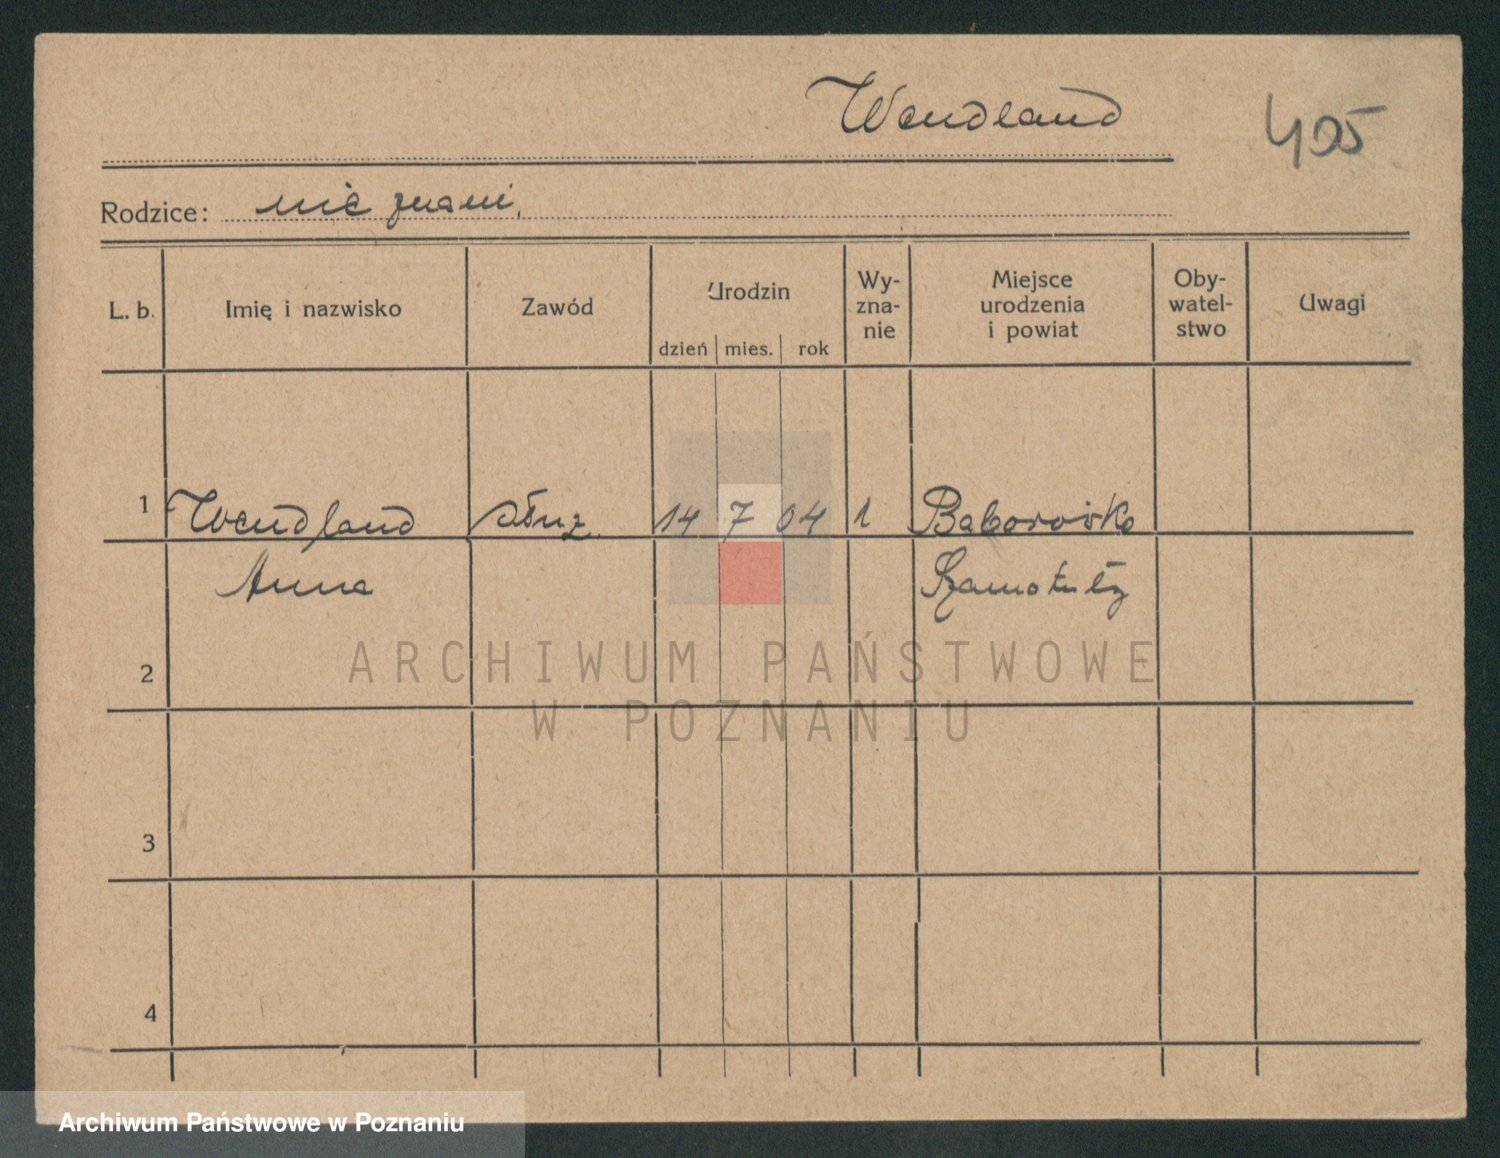 Wendland
405
Rodzice: nie znani,
L. b. Imię i nazwisko Zawód Urodzin dzień mies. rok Wy-zna-nie Miejsce urodzenia i powiat Oby-watel-stwo Uwagi
1 Wendland służ. 14 7 04 Baborówko
Anna Szamotuły
2
ARCHIWUM PAŃSTWOWE
W POZNANIU
3
4
Archiwum Państwowe w Poznaniu